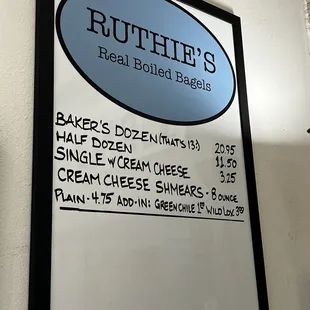 RUTHIE'S
Real Boiled Bagels
BAKER'S DOZEN (THATS 13!) 20.95
HALF DOZEN 11.50
SINGLE W/CREAM CHEESE 3.25
CREAM CHEESE SHMEARS - 8 OUNCE
PLAIN - 4.75 ADD-IN: GREEN CHILE 1⁵⁰ WILD LOX 3⁰⁰